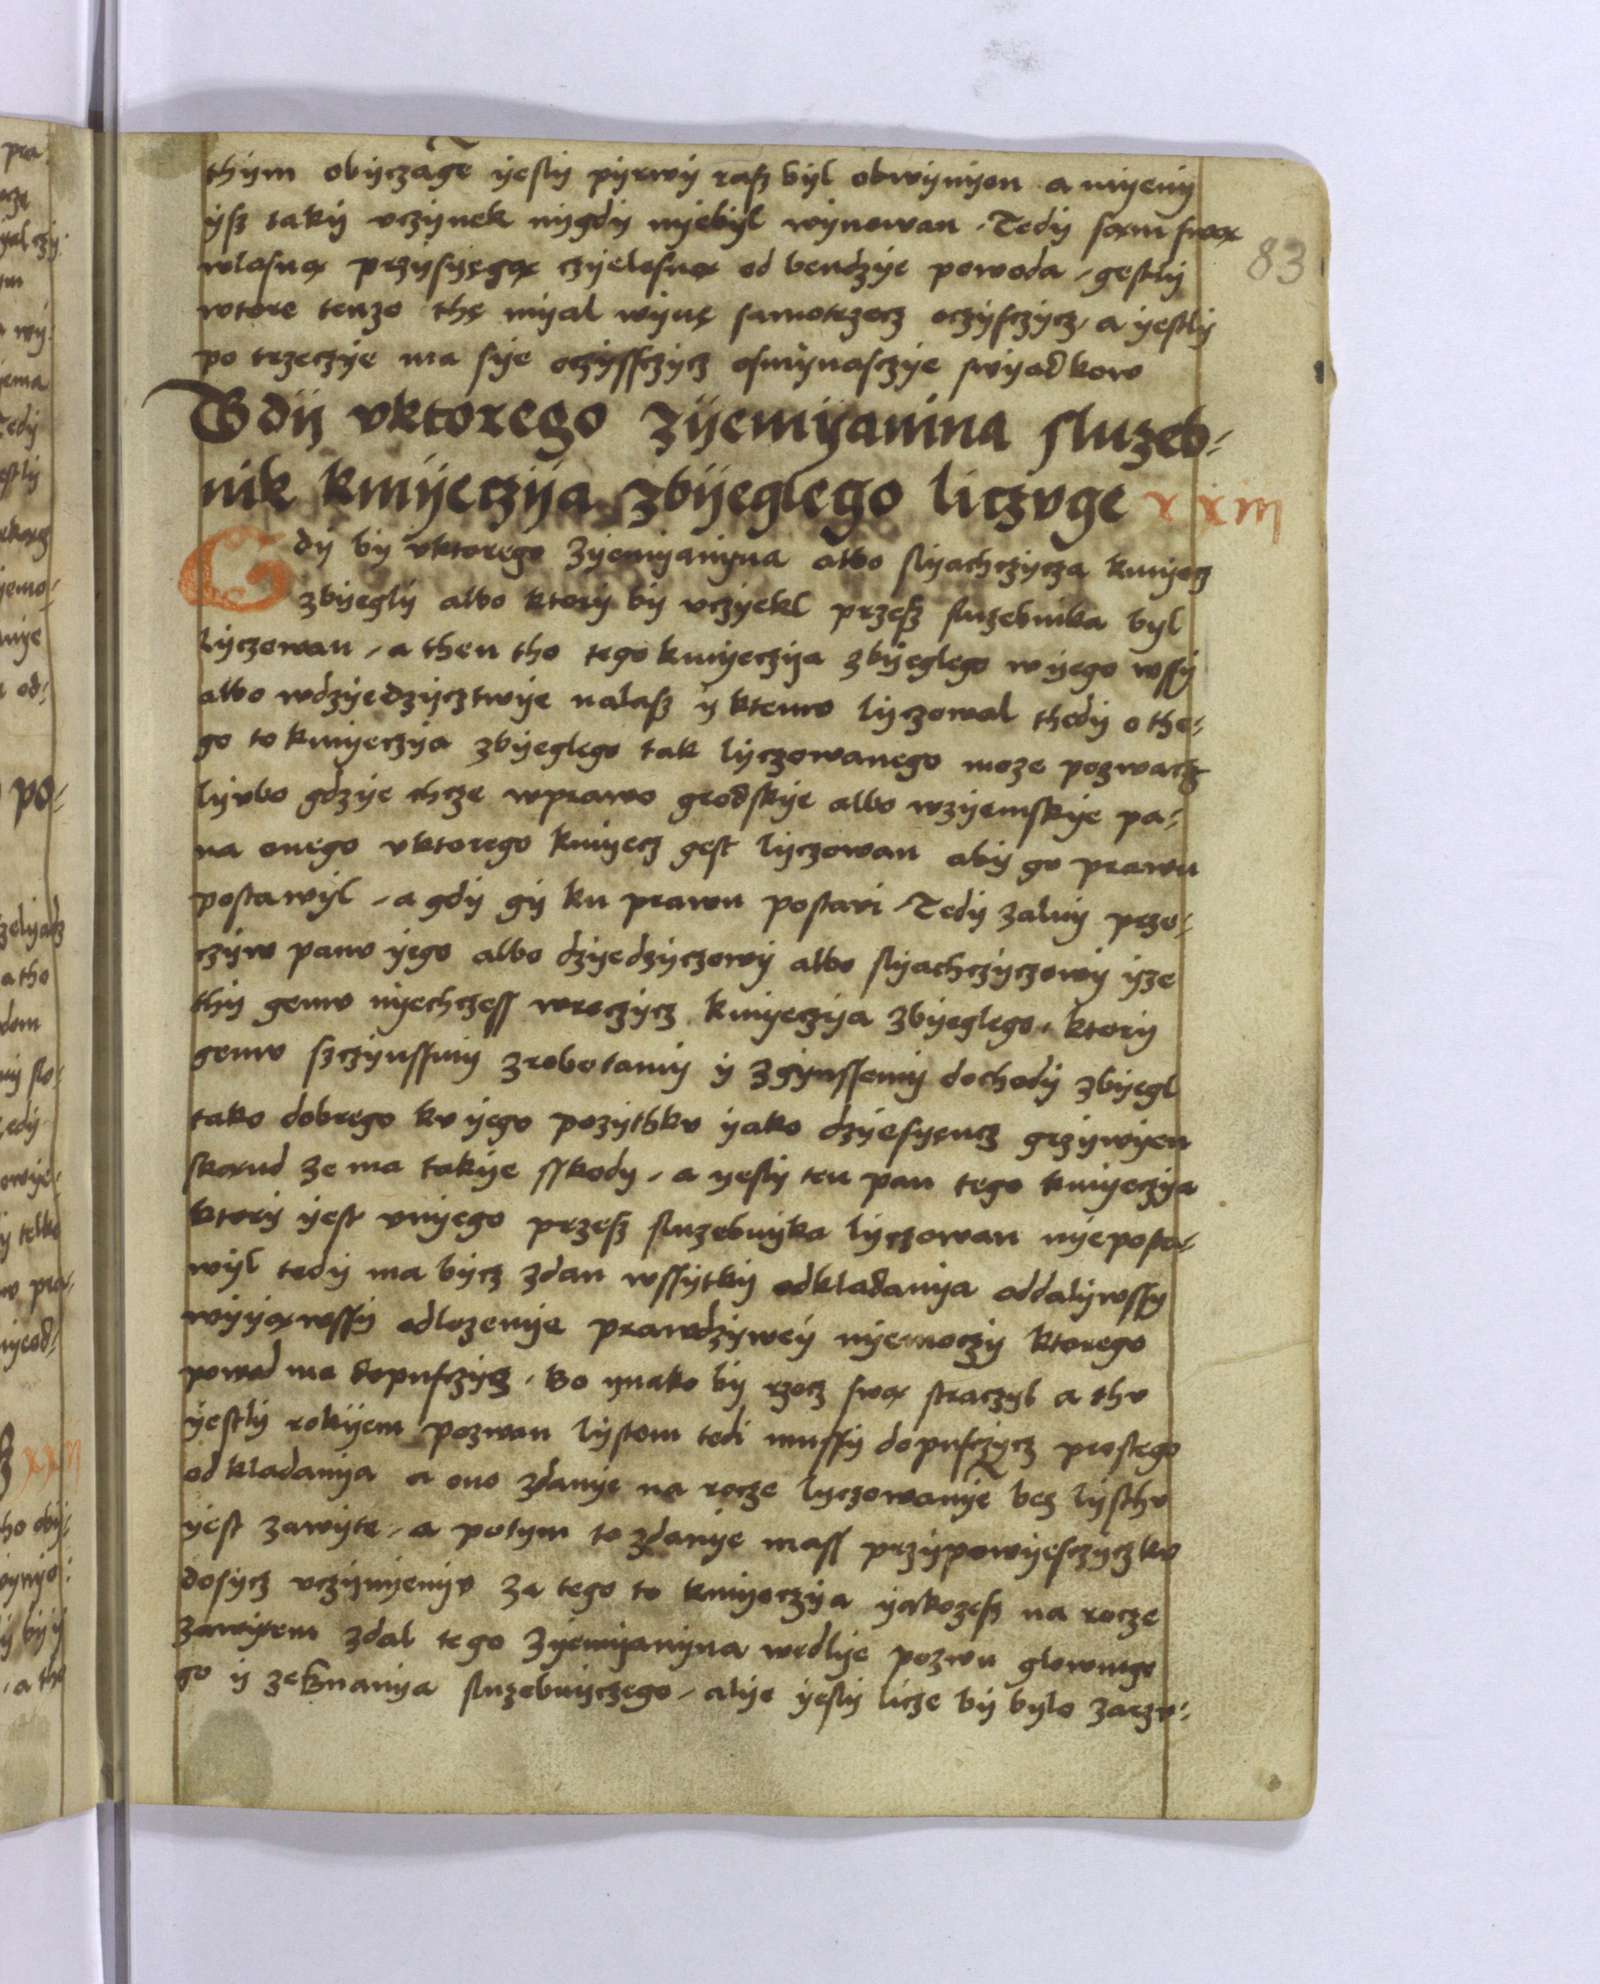 thym obyczage yesly pyrwy rasz byl obwynyon a myeny
ysz taky vczynek nygdy nyebyl wynowan . Tedy sam swą
własną przysyęgą czyelesną od bendzye powoda , gestly
wtore tenze thę myal wynę samotrzecz oczysczycz , a yestly
po trzeczye ma sye oczyssczycz osmynasczye swyadkow
83
Gdy vktorego zyemyanina sluzeb-
nik kmyeczya zbyeglego liczvge xxiii
Gdy by vktorego zyemyanyna albo slyachczycza kmyecz
zbyegly albo ktory by vczyekl przesz sluzebnika byl
lyczowan , a then tho tego kmyeczya zbyeglego w yego wssy
albo wdzyedzycztwye nalasz y ktemv lyczowal thedy o the-
go to kmyeczya zbyeglego tak lyczowanego moze pozwacz
lyvbo gdzye chcze wprawo grodskye albo wzyemskye pa-
na onego vktorego kmyecz gest lyczowan aby go prawu
postawyl , a gdy gy ku prawu postavi Tedy zaluy prze-
czyw panv yego albo dzyedzyczowy albo slyachczyczowy yze
thy gemv nyechczess wroczycz kmyeczya zbyeglego , ktory
gemv szczynssmy zrobotamy y zgynssemy dochody zbyegl
tako dobrego kv yego pozythkv yako dzyesyęncz grzywyen
skąnd ze ma takye sskody , a yesly ten pan tego kmyeczya
ktory yest vnyego przesz sluzebnyka lyczowan nyeposta-
wyl tedy ma bycz zdan wssytky odkladanya oddalywssy
wyyąwssy odlozenye prawdzywey nyemoczy ktorego
powod ma dopusczycz . Bo ynako by rzecz swą straczyl a thv
yestly rokyem pozwan lystem tedi mussy dopusczycz prostego
odkladanya a ono zdanye na rocze lyczowanye bez lysthv
yest zawyte , a potym to zdanye mass przypowyesczycz kv
dosycz vczynyenyv za tego to kmyeczya yakozesz na rocze
zawytem zdal tego zyemyanyna wedlye pozwu glownego
go y zeznanya sluzebnyczego , alye yesly licze by bylo zarzv-